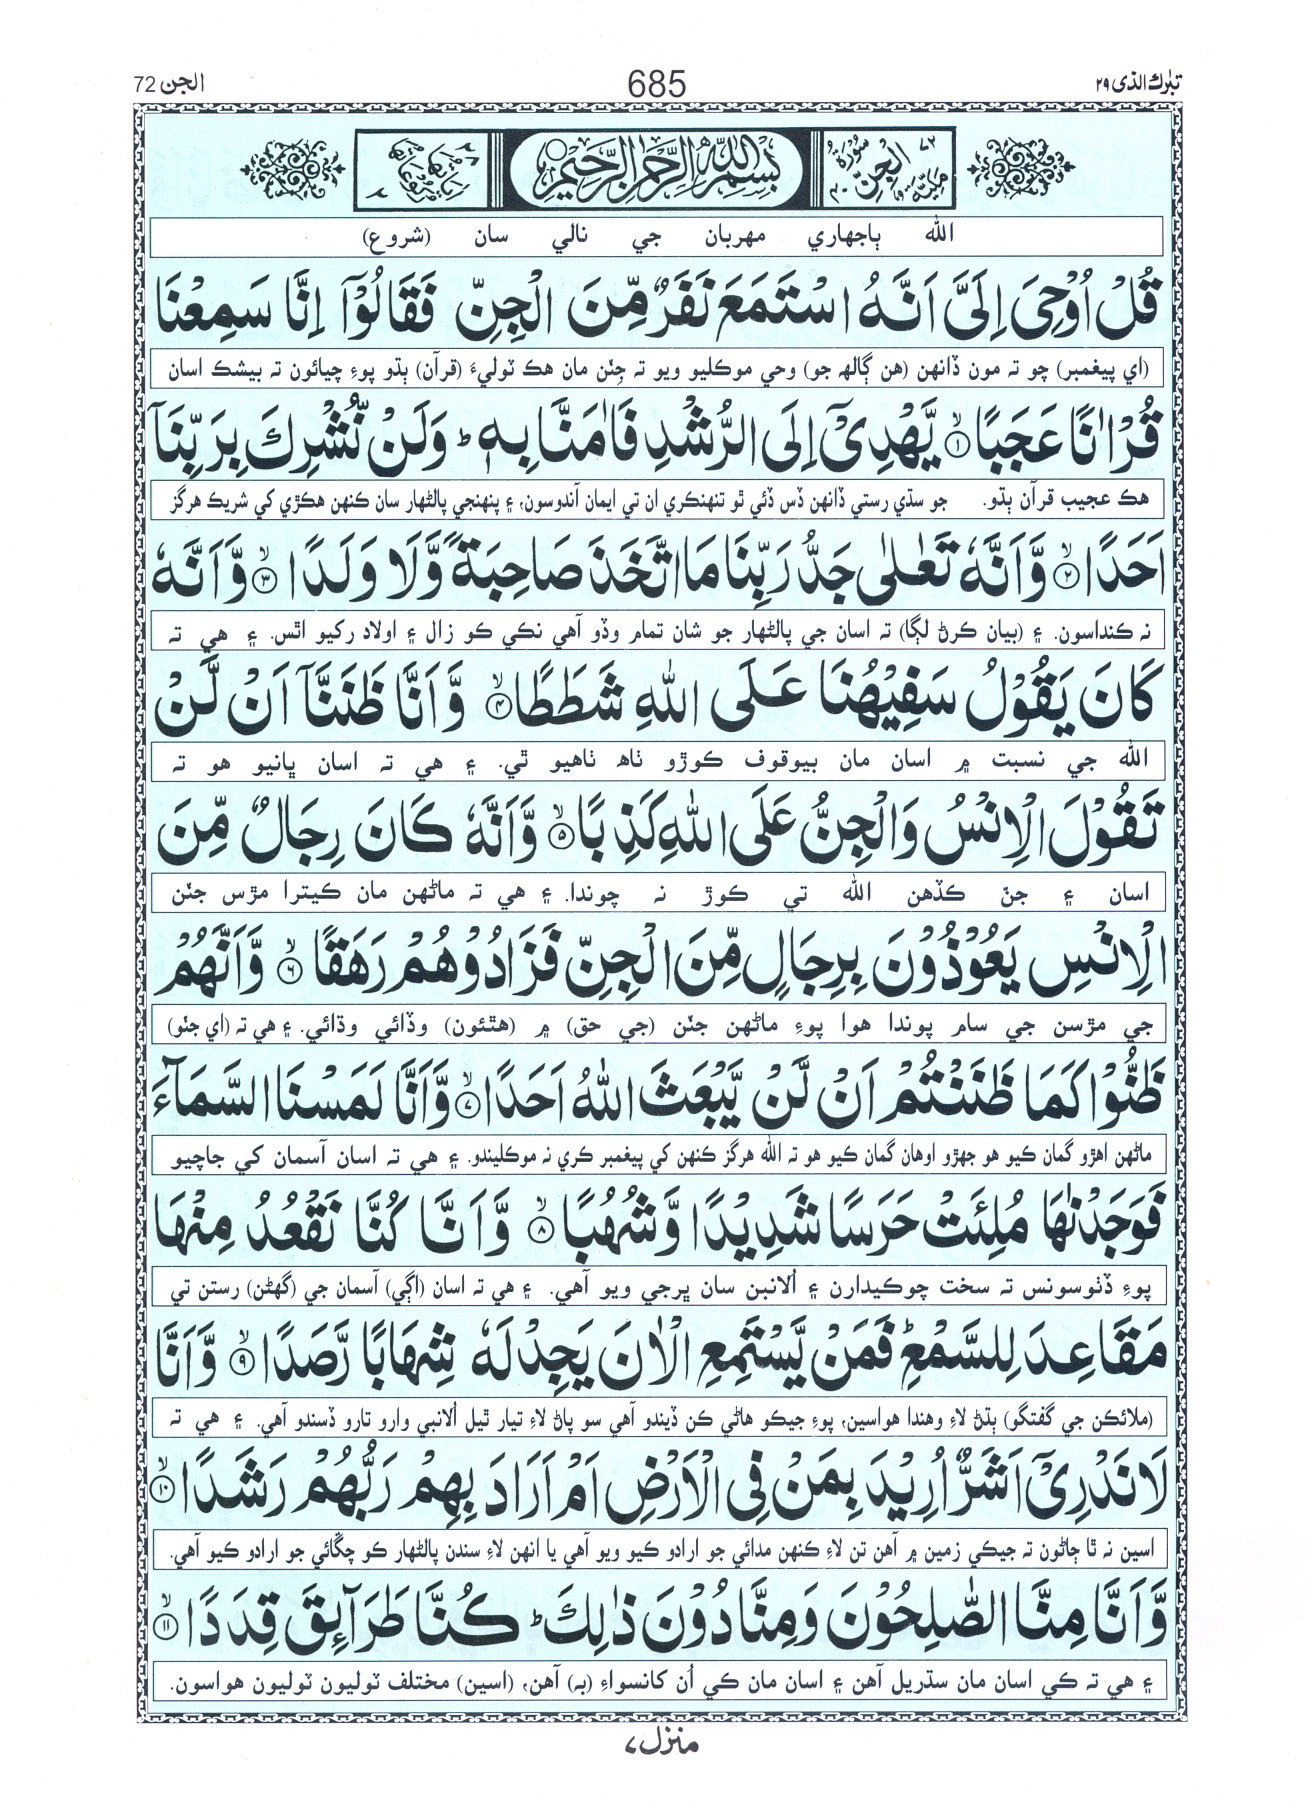 تبٰرك الذی ۲۹
685
الجن 72
سُوۡرَةُ الۡجِنِّ مَكِّيَّةٌ
بِسْمِ اللهِ الرَّحْمٰنِ الرَّحِيْمِ
الله ٻاجھاري مھربان جي نالي سان (شروع)
قُلْ اُوْحِيَ اِلَيَّ اَنَّهُ اسْتَمَعَ نَفَرٌ مِّنَ الْجِنِّ فَقَالُوْٓا اِنَّا سَمِعْنَا
(اي پيغمبر) چو تہ مون ڏانھن (ھن ڳالھ جو) وحي موڪليو ويو تہ جِنّن مان ھڪ ٽوليءَ (قرآن) ٻڌو پوءِ چيائون تہ بيشڪ اسان
قُرْاٰنًا عَجَبًا ۙ۝۱ يَّهْدِيْٓ اِلَى الرُّشْدِ فَاٰمَنَّا بِهٖ ؕ وَلَنْ نُّشْرِكَ بِرَبِّنَآ
ھڪ عجيب قرآن ٻڌو. جو سڌي رستي ڏانھن ڏس ڏئي ٿو تنھنڪري ان تي ايمان آندوسون، ۽ پنھنجي پالڻھار سان ڪنھن ھڪڙي کي شريڪ ھرگز
اَحَدًا ۙ۝۲ وَّاَنَّهٗ تَعٰلٰى جَدُّ رَبِّنَا مَا اتَّخَذَ صَاحِبَةً وَّلَا وَلَدًا ۙ۝۳ وَّاَنَّهٗ
نہ ڪنداسون. ۽ (بيان ڪرڻ لڳا) تہ اسان جي پالڻھار جو شان تمام وڏو آھي نڪي ڪو زال ۽ اولاد رکيو اٿس. ۽ ھي تہ
كَانَ يَقُوْلُ سَفِيْهُنَا عَلَى اللهِ شَطَطًا ۙ۝۴ وَّاَنَّا ظَنَنَّآ اَنْ لَّنْ
الله جي نسبت ۾ اسان مان بيوقوف ڪوڙو ٺاھ ٺاھيو ٿي. ۽ ھي تہ اسان ڀانيو ھو تہ
تَقُوْلَ الْاِنْسُ وَالْجِنُّ عَلَى اللهِ كَذِبًا ۙ۝۵ وَّاَنَّهٗ كَانَ رِجَالٌ مِّنَ
اسان ۽ جنّ ڪڏھن الله تي ڪوڙ نہ چوندا. ۽ ھي تہ ماڻھن مان ڪيترا مڙس جنّن
الْاِنْسِ يَعُوْذُوْنَ بِرِجَالٍ مِّنَ الْجِنِّ فَزَادُوْهُمْ رَهَقًا ۙ۝۶ وَّاَنَّهُمْ
جي مڙسن جي سام پوندا ھوا پوءِ ماڻھن جنّن (جي حق) ۾ (ھٿئون) وڏائي وڌائي. ۽ ھي تہ (اي جنّو)
ظَنُّوْا كَمَا ظَنَنْتُمْ اَنْ لَّنْ يَّبْعَثَ اللهُ اَحَدًا ۙ۝۷ وَّاَنَّا لَمَسْنَا السَّمَآءَ
ماڻھن اھڙو گمان ڪيو ھو جھڙو اوھان گمان ڪيو ھو تہ الله ھرگز ڪنھن کي پيغمبر ڪري نہ موڪليندو. ۽ ھي تہ اسان آسمان کي جاچيو
فَوَجَدْنٰهَا مُلِئَتْ حَرَسًا شَدِيْدًا وَّشُهُبًا ۙ۝۸ وَّاَنَّا كُنَّا نَقْعُدُ مِنْهَا
پوءِ ڏٺوسونس تہ سخت چوڪيدارن ۽ اُلانبن سان ڀرجي ويو آھي. ۽ ھي تہ اسان (اڳي) آسمان جي (گھڻن) رستن تي
مَقَاعِدَ لِلسَّمْعِ ؕ فَمَنْ يَّسْتَمِعِ الْاٰنَ يَجِدْ لَهٗ شِهَابًا رَّصَدًا ۙ۝۹ وَّاَنَّا
(ملائڪن جي گفتگو) ٻڌڻ لاءِ وھندا ھواسين، پوءِ جيڪو ھاڻي ڪن ڏيندو آھي سو پاڻ لاءِ تيار ٿيل اُلانبي وارو تارو ڏسندو آھي. ۽ ھي تہ
لَا نَدْرِيْٓ اَشَرٌّ اُرِيْدَ بِمَنْ فِي الْاَرْضِ اَمْ اَرَادَ بِهِمْ رَبُّهُمْ رَشَدًا ۙ۝۱۰
اسين نہ ٿا ڄاڻون تہ جيڪي زمين ۾ آھن تن لاءِ ڪنھن مدائي جو ارادو ڪيو ويو آھي يا انھن لاءِ سندن پالڻھار ڪو چڱائي جو ارادو ڪيو آھي.
وَّاَنَّا مِنَّا الصّٰلِحُوْنَ وَمِنَّا دُوْنَ ذٰلِكَ ؕ كُنَّا طَرَآئِقَ قِدَدًا ۙ۝۱۱
۽ ھي تہ ڪي اسان مان سڌريل آھن ۽ اسان مان ڪي اُن کانسواءِ (بہ) آھن، (اسين) مختلف ٽوليون ٽوليون ھواسون.
منزل ۷